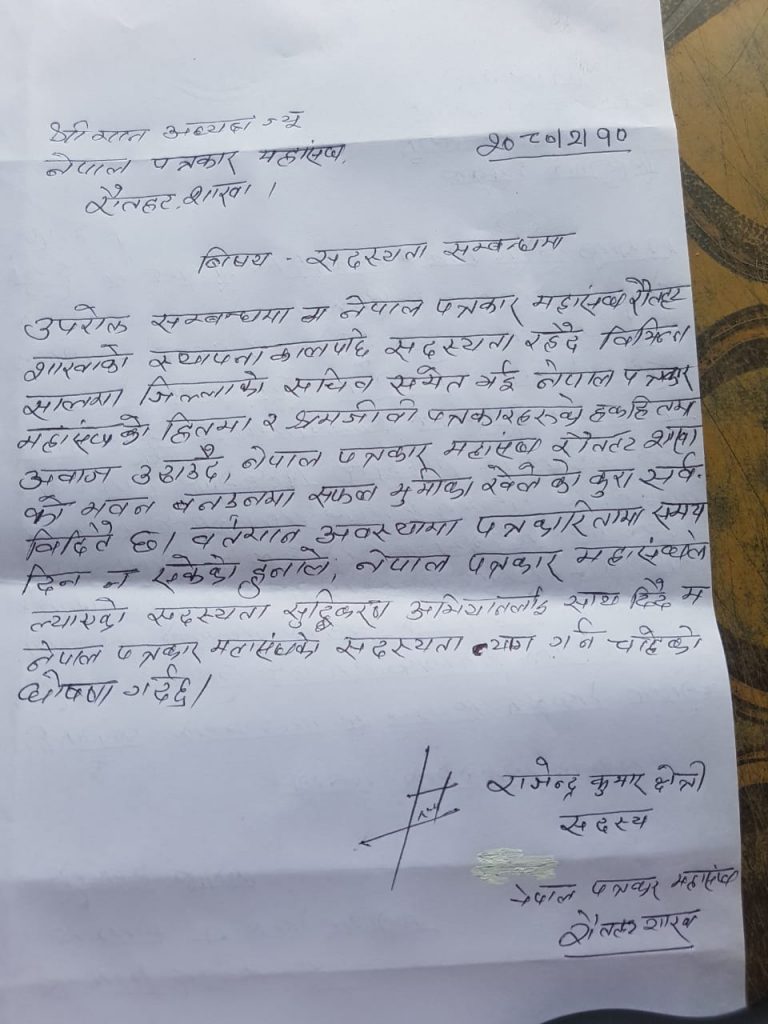 श्रीमान अध्यक्ष ज्यू
२०८०।२।१०
नेपाल पत्रकार महासंघ,
रौतहट शाखा ।
बिषय - सदस्यता सम्बन्धमा
उपरोक्त सम्बन्धमा म नेपाल पत्रकार महासंघ रौतहट
शाखाको स्थापना कालपछि सदस्यता रहँदै विभिन्न
सालमा जिल्लाको सचिव समेत भई नेपाल पत्रकार
महासंघको हितमा र श्रमजीवी पत्रकारहरुको हकहितमा
अवाज उठाउँदै, नेपाल पत्रकार महासंघ रौतहट शाखा
को भवन बनाउनमा सफल भुमीका खेलेको कुरा सर्व-
विदितै छ। वर्तमान अवस्थामा पत्रकारितामा समय
दिन न सकेको हुनाले, नेपाल पत्रकार महासंघले
ल्याएको सदस्यता सुद्धिकरण अभियानलाई साथ दिँदै म
नेपाल पत्रकार महासंघको सदस्यता त्याग गर्न चाहेको
घोषणा गर्दछु।
राजेन्द्र कुमार क्षेत्री
सदस्य
नेपाल पत्रकार महासंघ
रौतहट शाखा